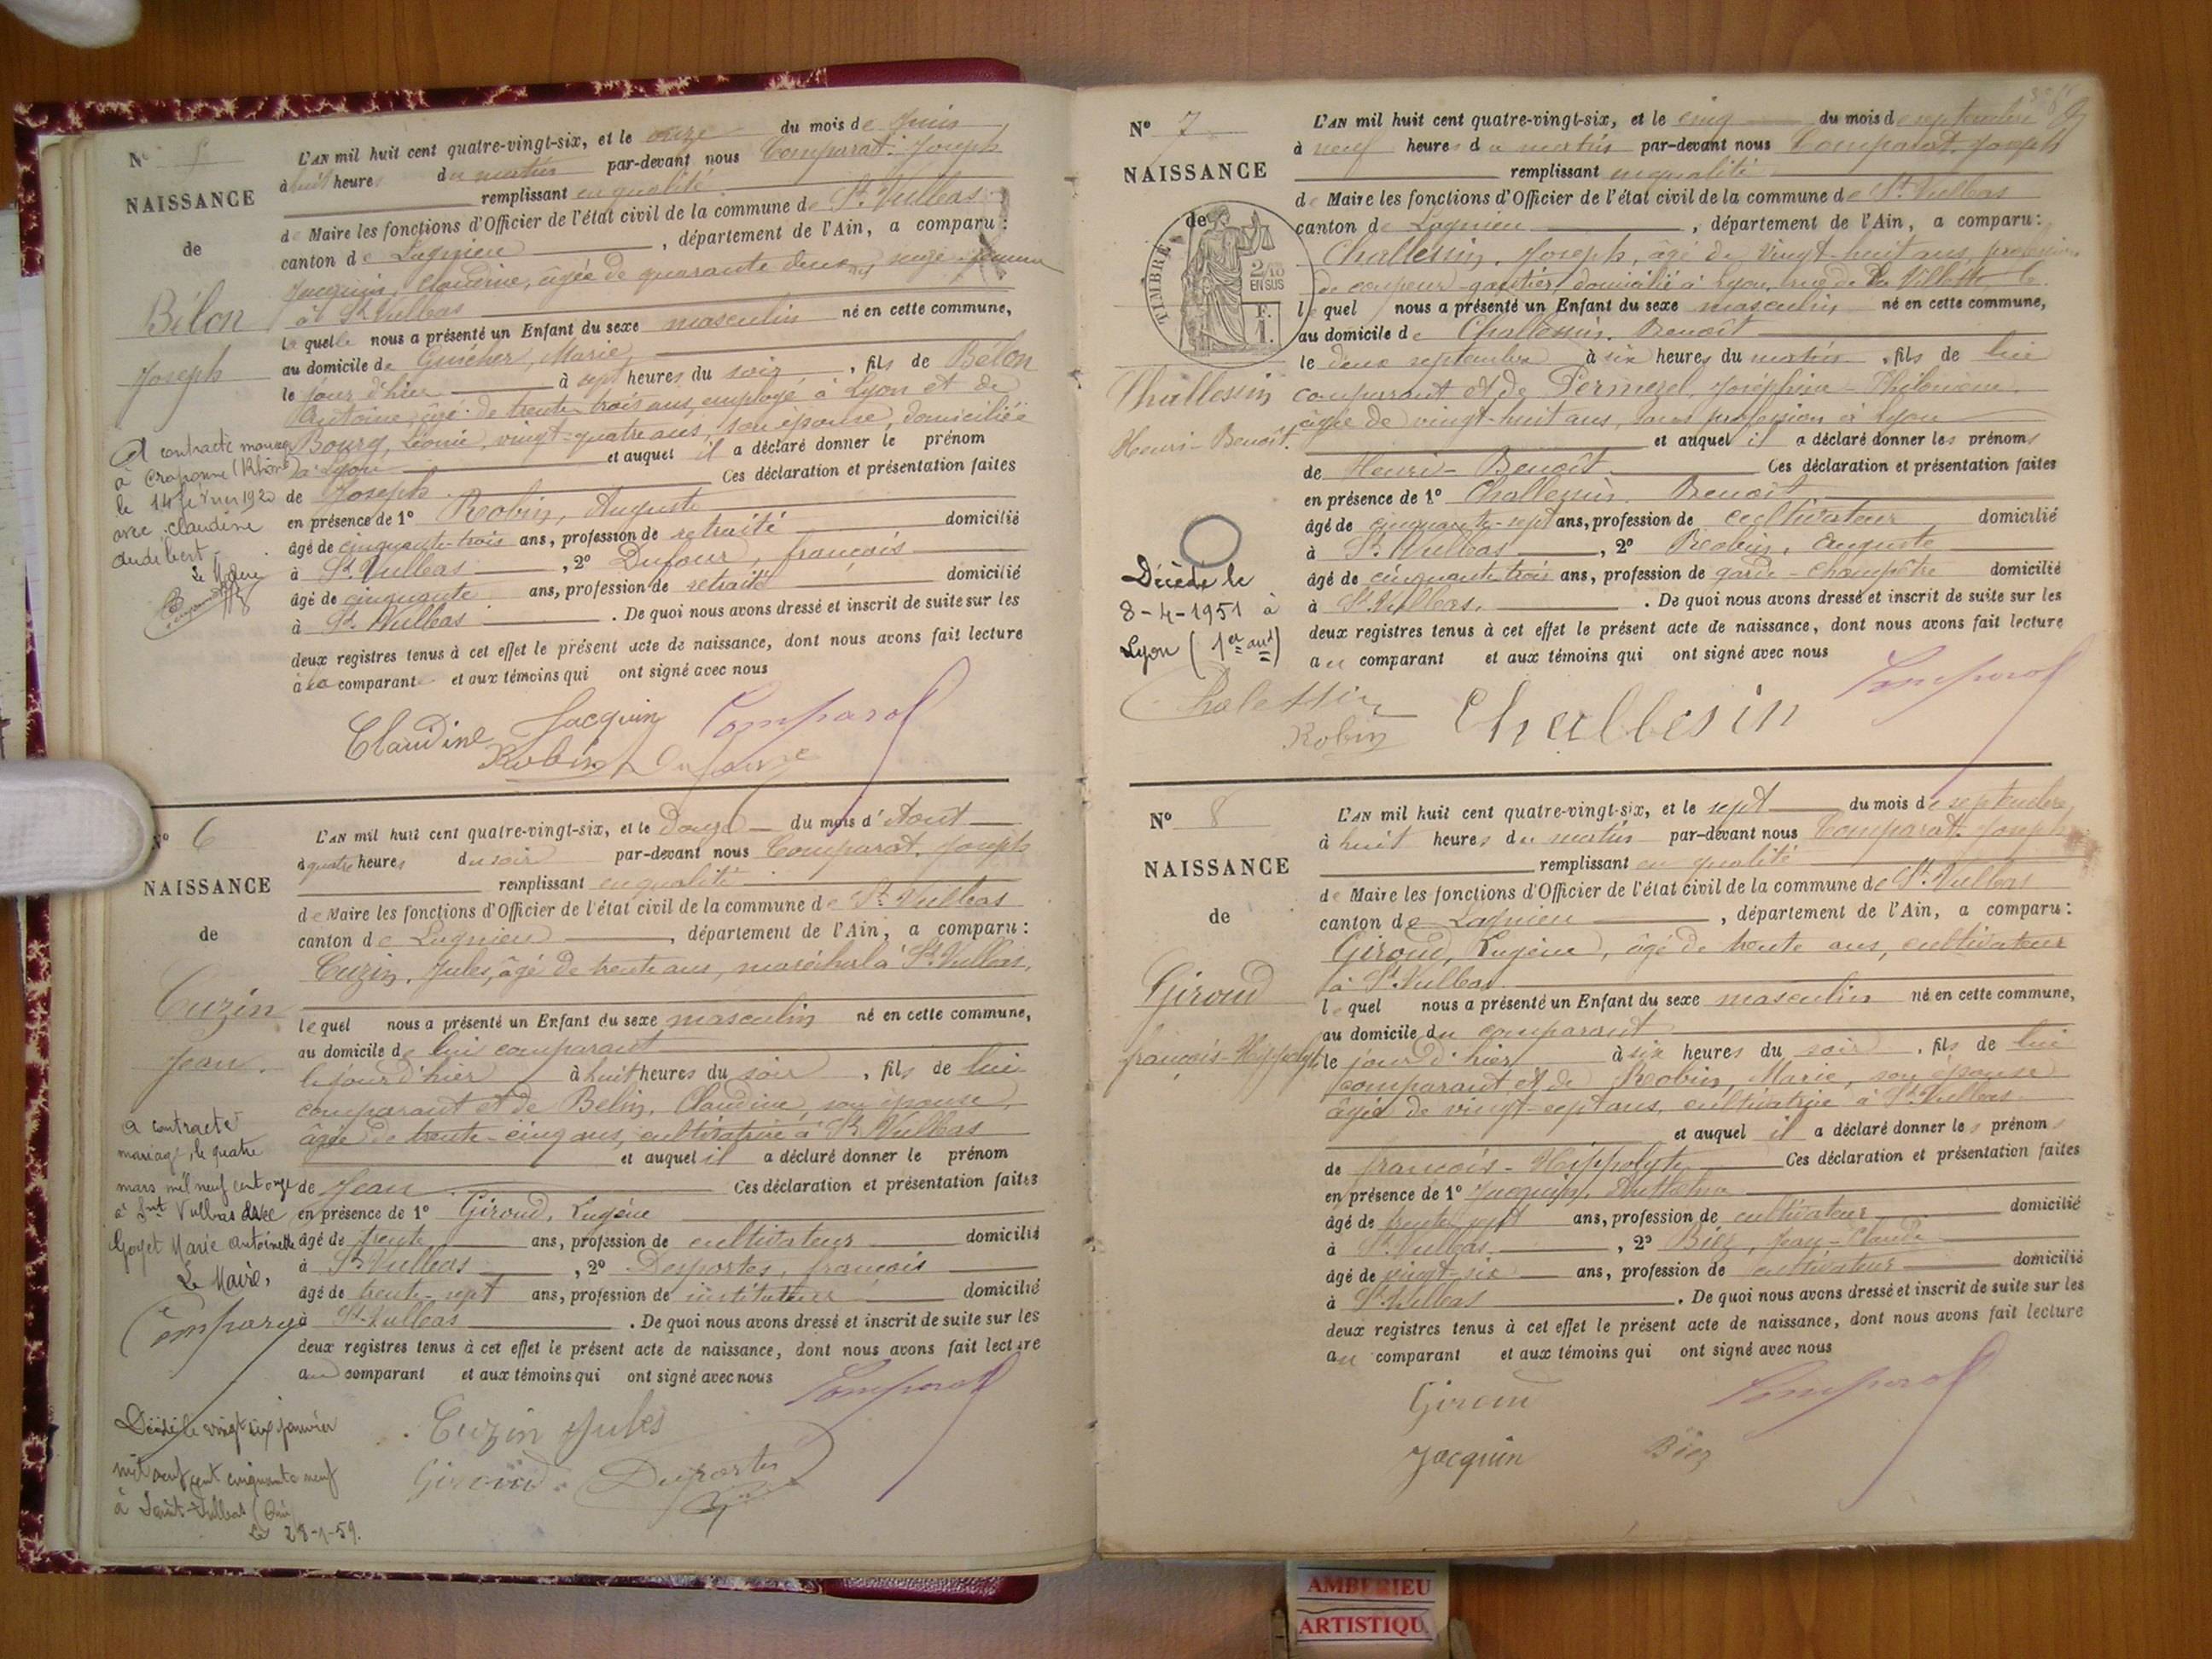 N° 5
NAISSANCE
de
Bélon
Joseph
A contracté mariage
à Craponne (Rhône)
le 14 février 1920
avec Claudine
Audibert
Le Maire
L'AN mil huit cent quatre-vingt-six, et le onze du mois de Juin
à huit heures du matin par-devant nous Comparat Joseph
remplissant en qualité
de Maire les fonctions d'Officier de l'état civil de la commune de St. Vulbas
canton de Lagnieu, département de l'Ain, a comparu:
Jacquin, Claudine, âgée de quarante deux ans, sage-femme
à St Vulbas
laquelle nous a présenté un Enfant du sexe masculin né en cette commune,
au domicile de Marie
le jour d'hier à sept heures du soir, fils de Bélon
Antoine, âgé de trente trois ans, employé à Lyon et de
Bourg, Léonie, vingt-quatre ans, son épouse, domiciliée
à Lyon et auquel il a déclaré donner le prénom
de Joseph Ces déclaration et présentation faites
en présence de 1° Robin, Auguste
âgé de cinquante-trois ans, profession de retraité domicilié
à St. Vulbas, 2° Dufour, françois
âgé de cinquante ans, profession de retraité domicilié
à St. Vulbas. De quoi nous avons dressé et inscrit de suite sur les
deux registres tenus à cet effet le présent acte de naissance, dont nous avons fait lecture
à la comparante et aux témoins qui ont signé avec nous
Claudine Jacquin Comparat
Robin Dufour
N° 6
NAISSANCE
de
Cuzin
Jean.
a contracté
mariage, le quatre
mars mil neuf cent onze
à Snt Vulbas avec
Goyet Marie Antoinette
Le Maire,
Comparat
Décédé le vingt six janvier
mil neuf cent cinquante neuf
à Saint-Vulbas (Ain)
Le 28-1-59.
L'AN mil huit cent quatre-vingt-six, et le douze du mois d'Août
à quatre heures du soir par-devant nous Comparat, Joseph
remplissant en qualité
de Maire les fonctions d'Officier de l'état civil de la commune de St. Vulbas
canton de Lagnieu, département de l'Ain, a comparu:
Cuzin, Jules, âgé de trente ans, maréchal à St. Vulbas,
lequel nous a présenté un Enfant du sexe masculin né en cette commune,
au domicile de lui comparant
le jour d'hier à huit heures du soir, fils de lui
comparant et de Belin, Claudine, son épouse,
âgée de trente-cinq ans, cultivatrice à St Vulbas
et auquel il a déclaré donner le prénom
de Jean Ces déclaration et présentation faites
en présence de 1° Giroud, Eugène
âgé de trente ans, profession de cultivateur domicilié
à St. Vulbas, 2° Desportes, françois
âgé de trente-sept ans, profession de instituteur domicilié
à St. Vulbas. De quoi nous avons dressé et inscrit de suite sur les
deux registres tenus à cet effet le présent acte de naissance, dont nous avons fait lecture
au comparant et aux témoins qui ont signé avec nous
Comparat
Cuzin Jules
Giroud Desportes
N° 7
NAISSANCE
de
TIMBRE
2/10
EN SUS
F.
1.
Challessin
Henri-Benoît.
Décédé le
8-4-1951 à
Lyon (1er arrt)
L'AN mil huit cent quatre-vingt-six, et le cinq du mois de septembre
à neuf heures du matin par-devant nous Comparat, Joseph
remplissant en qualité
de Maire les fonctions d'Officier de l'état civil de la commune de St. Vulbas
canton de Lagnieu, département de l'Ain, a comparu:
Challessin, Joseph, âgé de vingt-huit ans, profession
de coupeur-gantier, domicilié à Lyon, rue de la Villette
lequel nous a présenté un Enfant du sexe masculin né en cette commune,
au domicile de Challessin, Benoît
le deux septembre à six heures du matin, fils de lui
comparant et de Permezel, Joséphine-Philomène,
âgée de vingt-huit ans, sans profession à Lyon
et auquel il a déclaré donner les prénoms
de Henri-Benoît Ces déclaration et présentation faites
en présence de 1° Challessin, Benoît
âgé de cinquante-sept ans, profession de cultivateur domicilié
à St. Vulbas, 2° Robin, Auguste
âgé de cinquante trois ans, profession de garde-champêtre domicilié
à St. Vulbas. De quoi nous avons dressé et inscrit de suite sur les
deux registres tenus à cet effet le présent acte de naissance, dont nous avons fait lecture
au comparant et aux témoins qui ont signé avec nous
Chalessin Challesin Comparat
Robin
N° 8
NAISSANCE
de
Giroud
françois-Hippolyte
L'AN mil huit cent quatre-vingt-six, et le sept du mois de septembre
à huit heures du matin par-devant nous Comparat, Joseph
remplissant en qualité
de Maire les fonctions d'Officier de l'état civil de la commune de St. Vulbas
canton de Lagnieu, département de l'Ain, a comparu:
Giroud, Eugène, âgé de trente ans, cultivateur
à St. Vulbas
lequel nous a présenté un Enfant du sexe masculin né en cette commune,
au domicile du comparant
le jour d'hier à six heures du soir, fils de lui
comparant et de Robin, Marie, son épouse
âgée de vingt-sept ans, cultivatrice à St. Vulbas
et auquel il a déclaré donner les prénoms
de françois-Hippolyte Ces déclaration et présentation faites
en présence de 1° Jacquin, Anthelme
âgé de trente sept ans, profession de cultivateur domicilié
à St. Vulbas, 2° Biez, Jean-Claude
âgé de vingt-six ans, profession de cultivateur domicilié
à St. Vulbas. De quoi nous avons dressé et inscrit de suite sur les
deux registres tenus à cet effet le présent acte de naissance, dont nous avons fait lecture
au comparant et aux témoins qui ont signé avec nous
Giroud Comparat
Jacquin Biez
AMBERIEU
ARTISTIQU